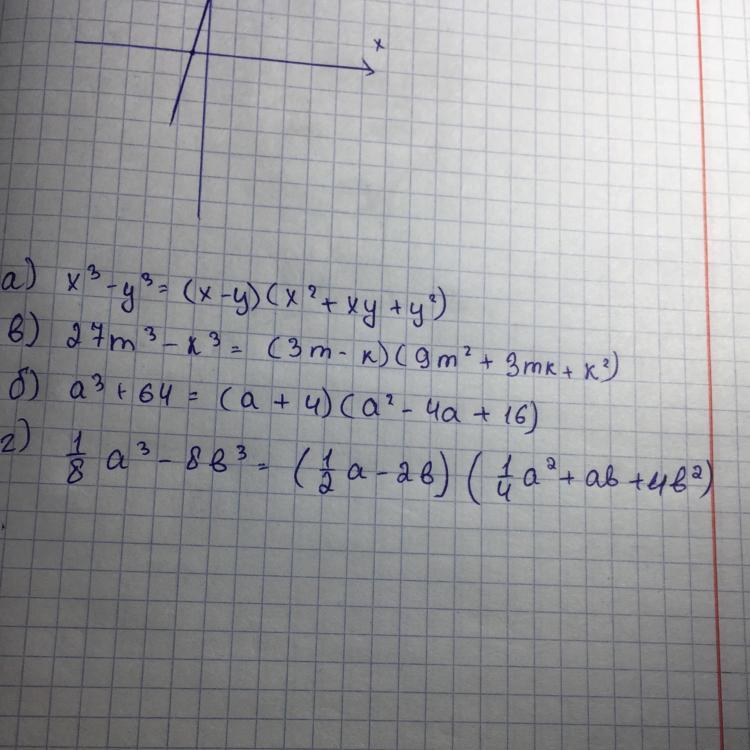 x
а) x³ - y³ = (x - y)(x² + xy + y²)
в) 27m³ - к³ = (3m - к)(9m² + 3mк + к²)
б) a³ + 64 = (a + 4)(a² - 4a + 16)
г) 1/8 a³ - 8в³ = (1/2 a - 2в)(1/4 a² + aв + 4в²)